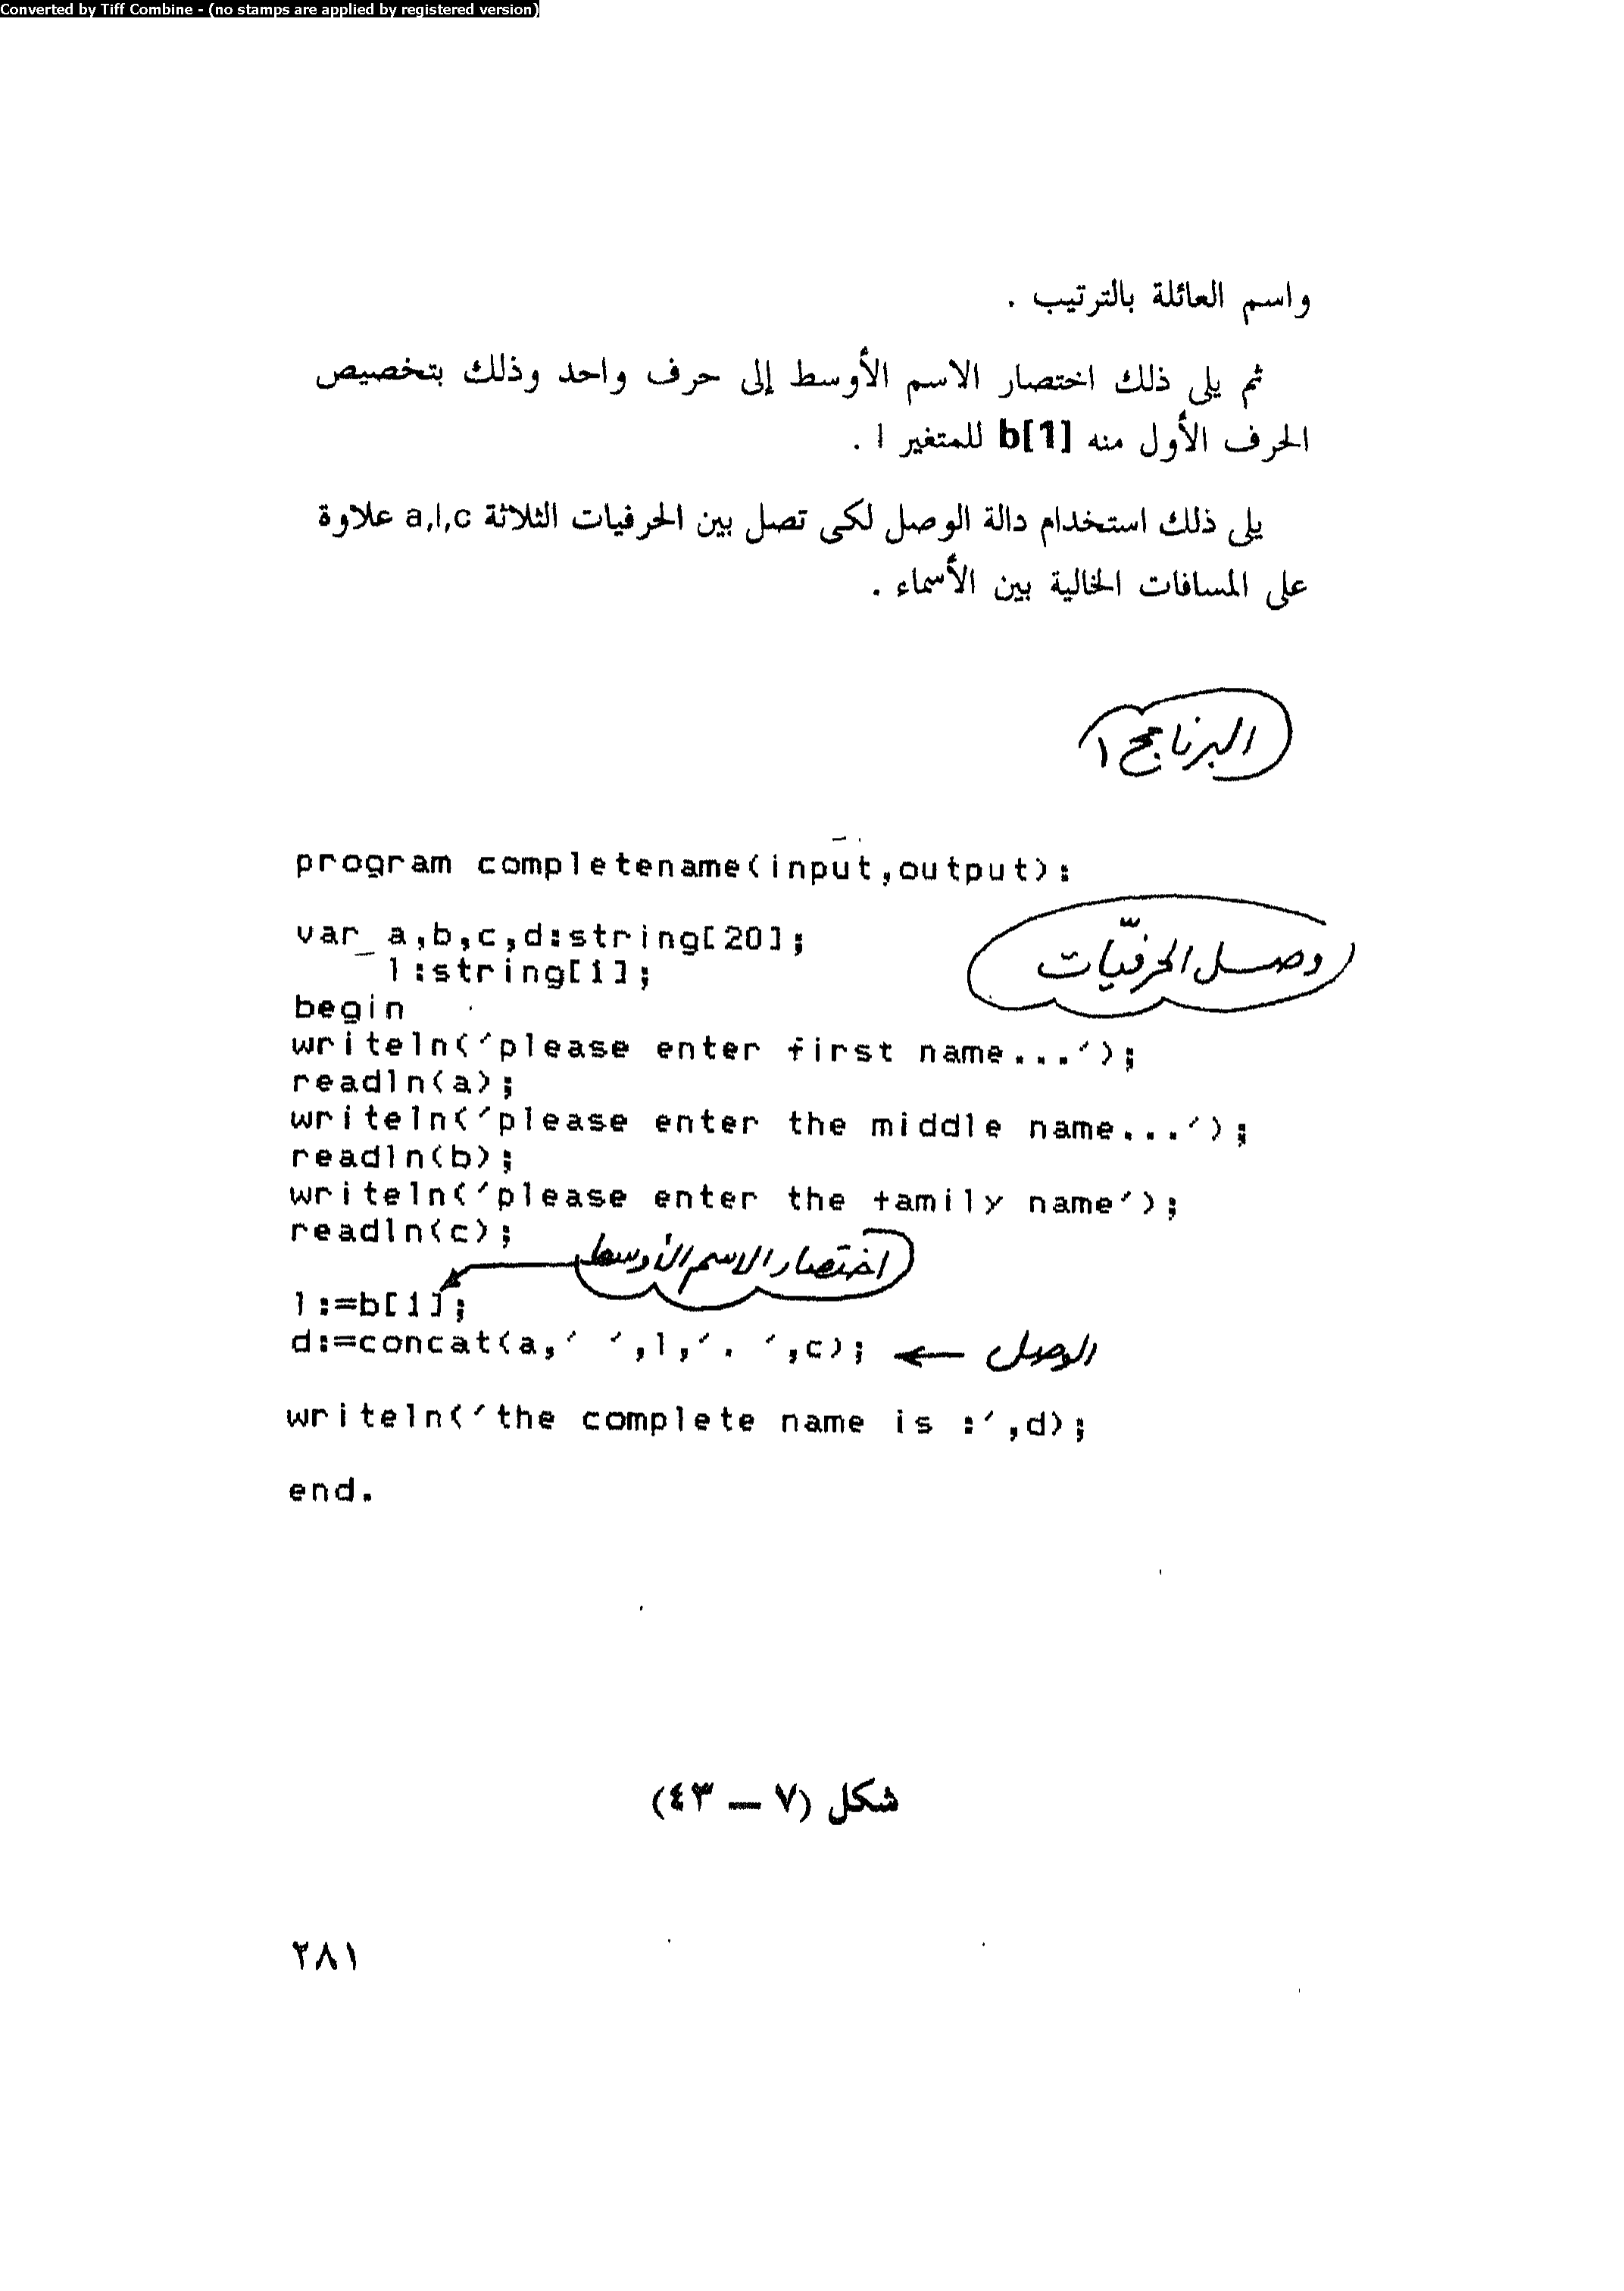 Converted by Tiff Combine - (no stamps are applied by registered version)
واسم العائلة بالترتيب .
ثم يلى ذلك اختصار الاسم الأوسط إلى حرف واحد وذلك بتخصيص
الحرف الأول منه b[1] للمتغير l .
يلى ذلك استخدام دالة الوصل لكى تصل بين الحرفيات الثلاثة a,l,c علاوة
على المسافات الخالية بين الأسماء .
البرنامج ١
program completename(input,output);
وصل الحرفيّات
var a,b,c,d:string[20];
l:string[1];
begin
writeln('please enter first name...');
readln(a);
writeln('please enter the middle name...');
readln(b);
writeln('please enter the family name');
readln(c);
اختصار الاسم الأوسط
l:=b[1];
d:=concat(a,' ',l,'. ',c); ← الوصل
writeln('the complete name is :',d);
end.
شكل (٧ — ٤٣)
٢٨١